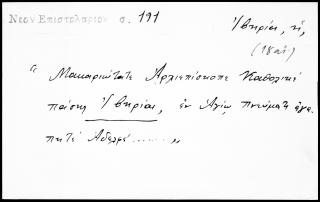 Νεον Επιστολαριον σ. 191
Ἰβηρία, ἡ,
(18 αἰ)
"Μακαριώτατε Αρχιεπίσκοπε Καθολικέ
πάσης Ἰβηρίας, ἐν Ἁγίῳ πνεύματι ἀγα-
πητέ Ἀδελφέ........„